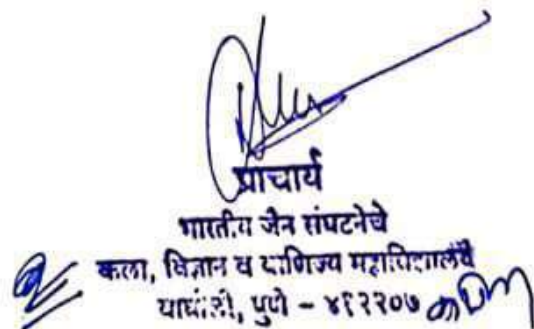 प्राचार्य
भारतीय जैन संघटनेचे
कला, विज्ञान व वाणिज्य महाविद्यालय
वाघोली, पुणे - ४१२२०७